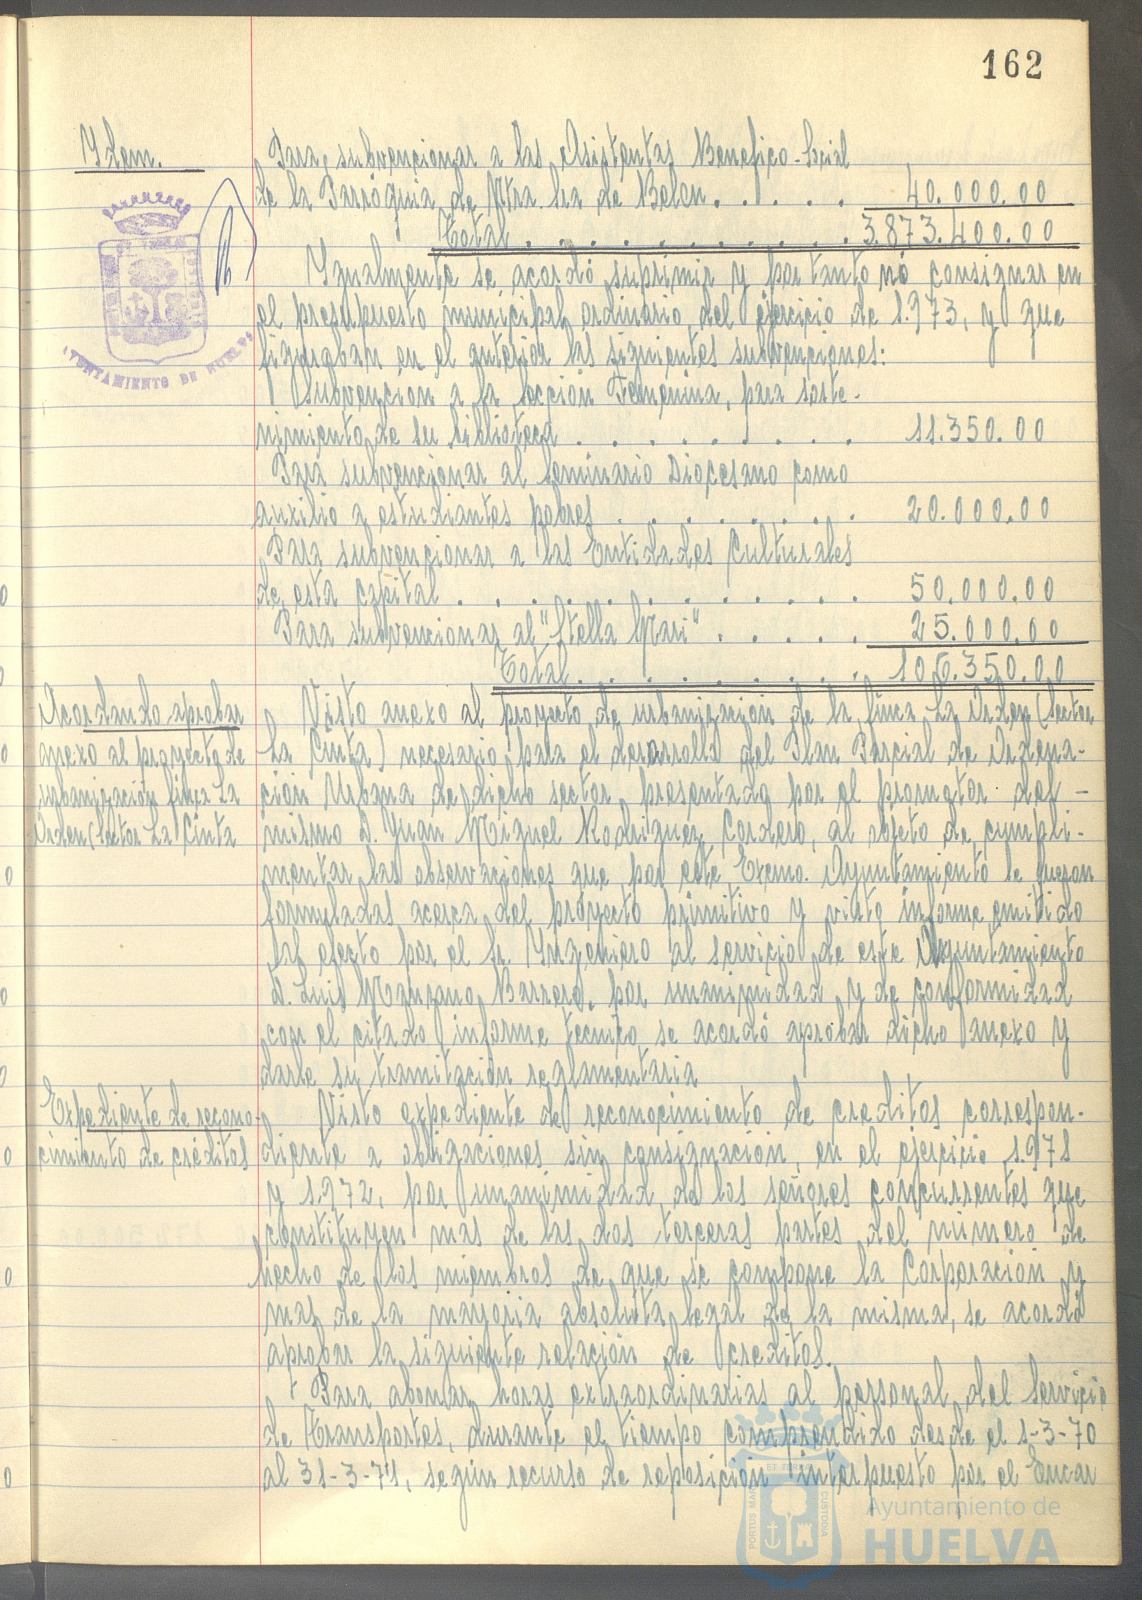 162
Ydem.
Para subvencionar a las Asistentas Benefico-Social
de la Parróquia de Ntra. Sra de Belen . . . . . 40.000.00
Total . . . . . . . . . . 3.873.400.00
Ygualmente se acordó suprimir y por tanto no consignar en
el presupuesto municipal ordinario del ejercicio de 1.973, y que
figuraban en el anterior las siguientes subvenciones:
Subvencion a la Sección Femenina, para soste-
nimiento de su biblioteca . . . . . . . 11.350.00
Para subvencionar al Seminario Diocesano como
auxilio a estudiantes pobres . . . . . . . 20.000.00
Para subvencionar a las Entidades Culturales
de esta capital . . . . . . . . . . . 50.000.00
Para subvencionar al "Stella Mari" . . . . . 25.000.00
Total . . . . . . . . 106.350.00
Acordando aprobar
anexo al proyecto de
urbanización finca La
Orden (Sector La Cinta
Visto anexo al proyecto de urbanizacion de la finca La Orden (Sector
La Cinta) necesario para el desarrollo del Plan Parcial de Ordena-
ción Urbana de dicho sector, presentado por el promotor del -
mismo D. Yuan Miguel Rodriguez Cordero, al objeto de cumpli-
mentar las observaciones que por este Excmo. Ayuntamiento le fueron
formuladas acerca del proyecto primitivo y visto informe emitido
al efecto por el Sr. Yngeniero al servicio de este Ayuntamiento
D. Luis Manzano Barrero, por unanimidad y de conformidad
con el citado informe tecnico se acordó aprobar dicho anexo y
darle su tramitación reglamentaria
Expediente de recono-
cimiento de créditos
Visto expediente de reconocimiento de creditos correspon-
diente a obligaciones sin consignación, en el ejercicio 1.971
y 1.972, por unanimidad de los señores concurrentes que
constituyen mas de las dos terceras partes del número de
hecho de los miembros de que se compone la Corporación y
mas de la mayoria absoluta legal de la misma, se acordó
aprobar la siguiente relación de creditos.
Para abonar horas extraordinarias al personal del Servicio
de Transportes, durante el tiempo comprendido desde el 1-3-70
al 31-3-71, según recurso de reposición interpuesto por el Encar
AYUNTAMIENTO DE HUELVA
PORTUS MARIS ET TERRAE CUSTODIA
Ayuntamiento de
HUELVA